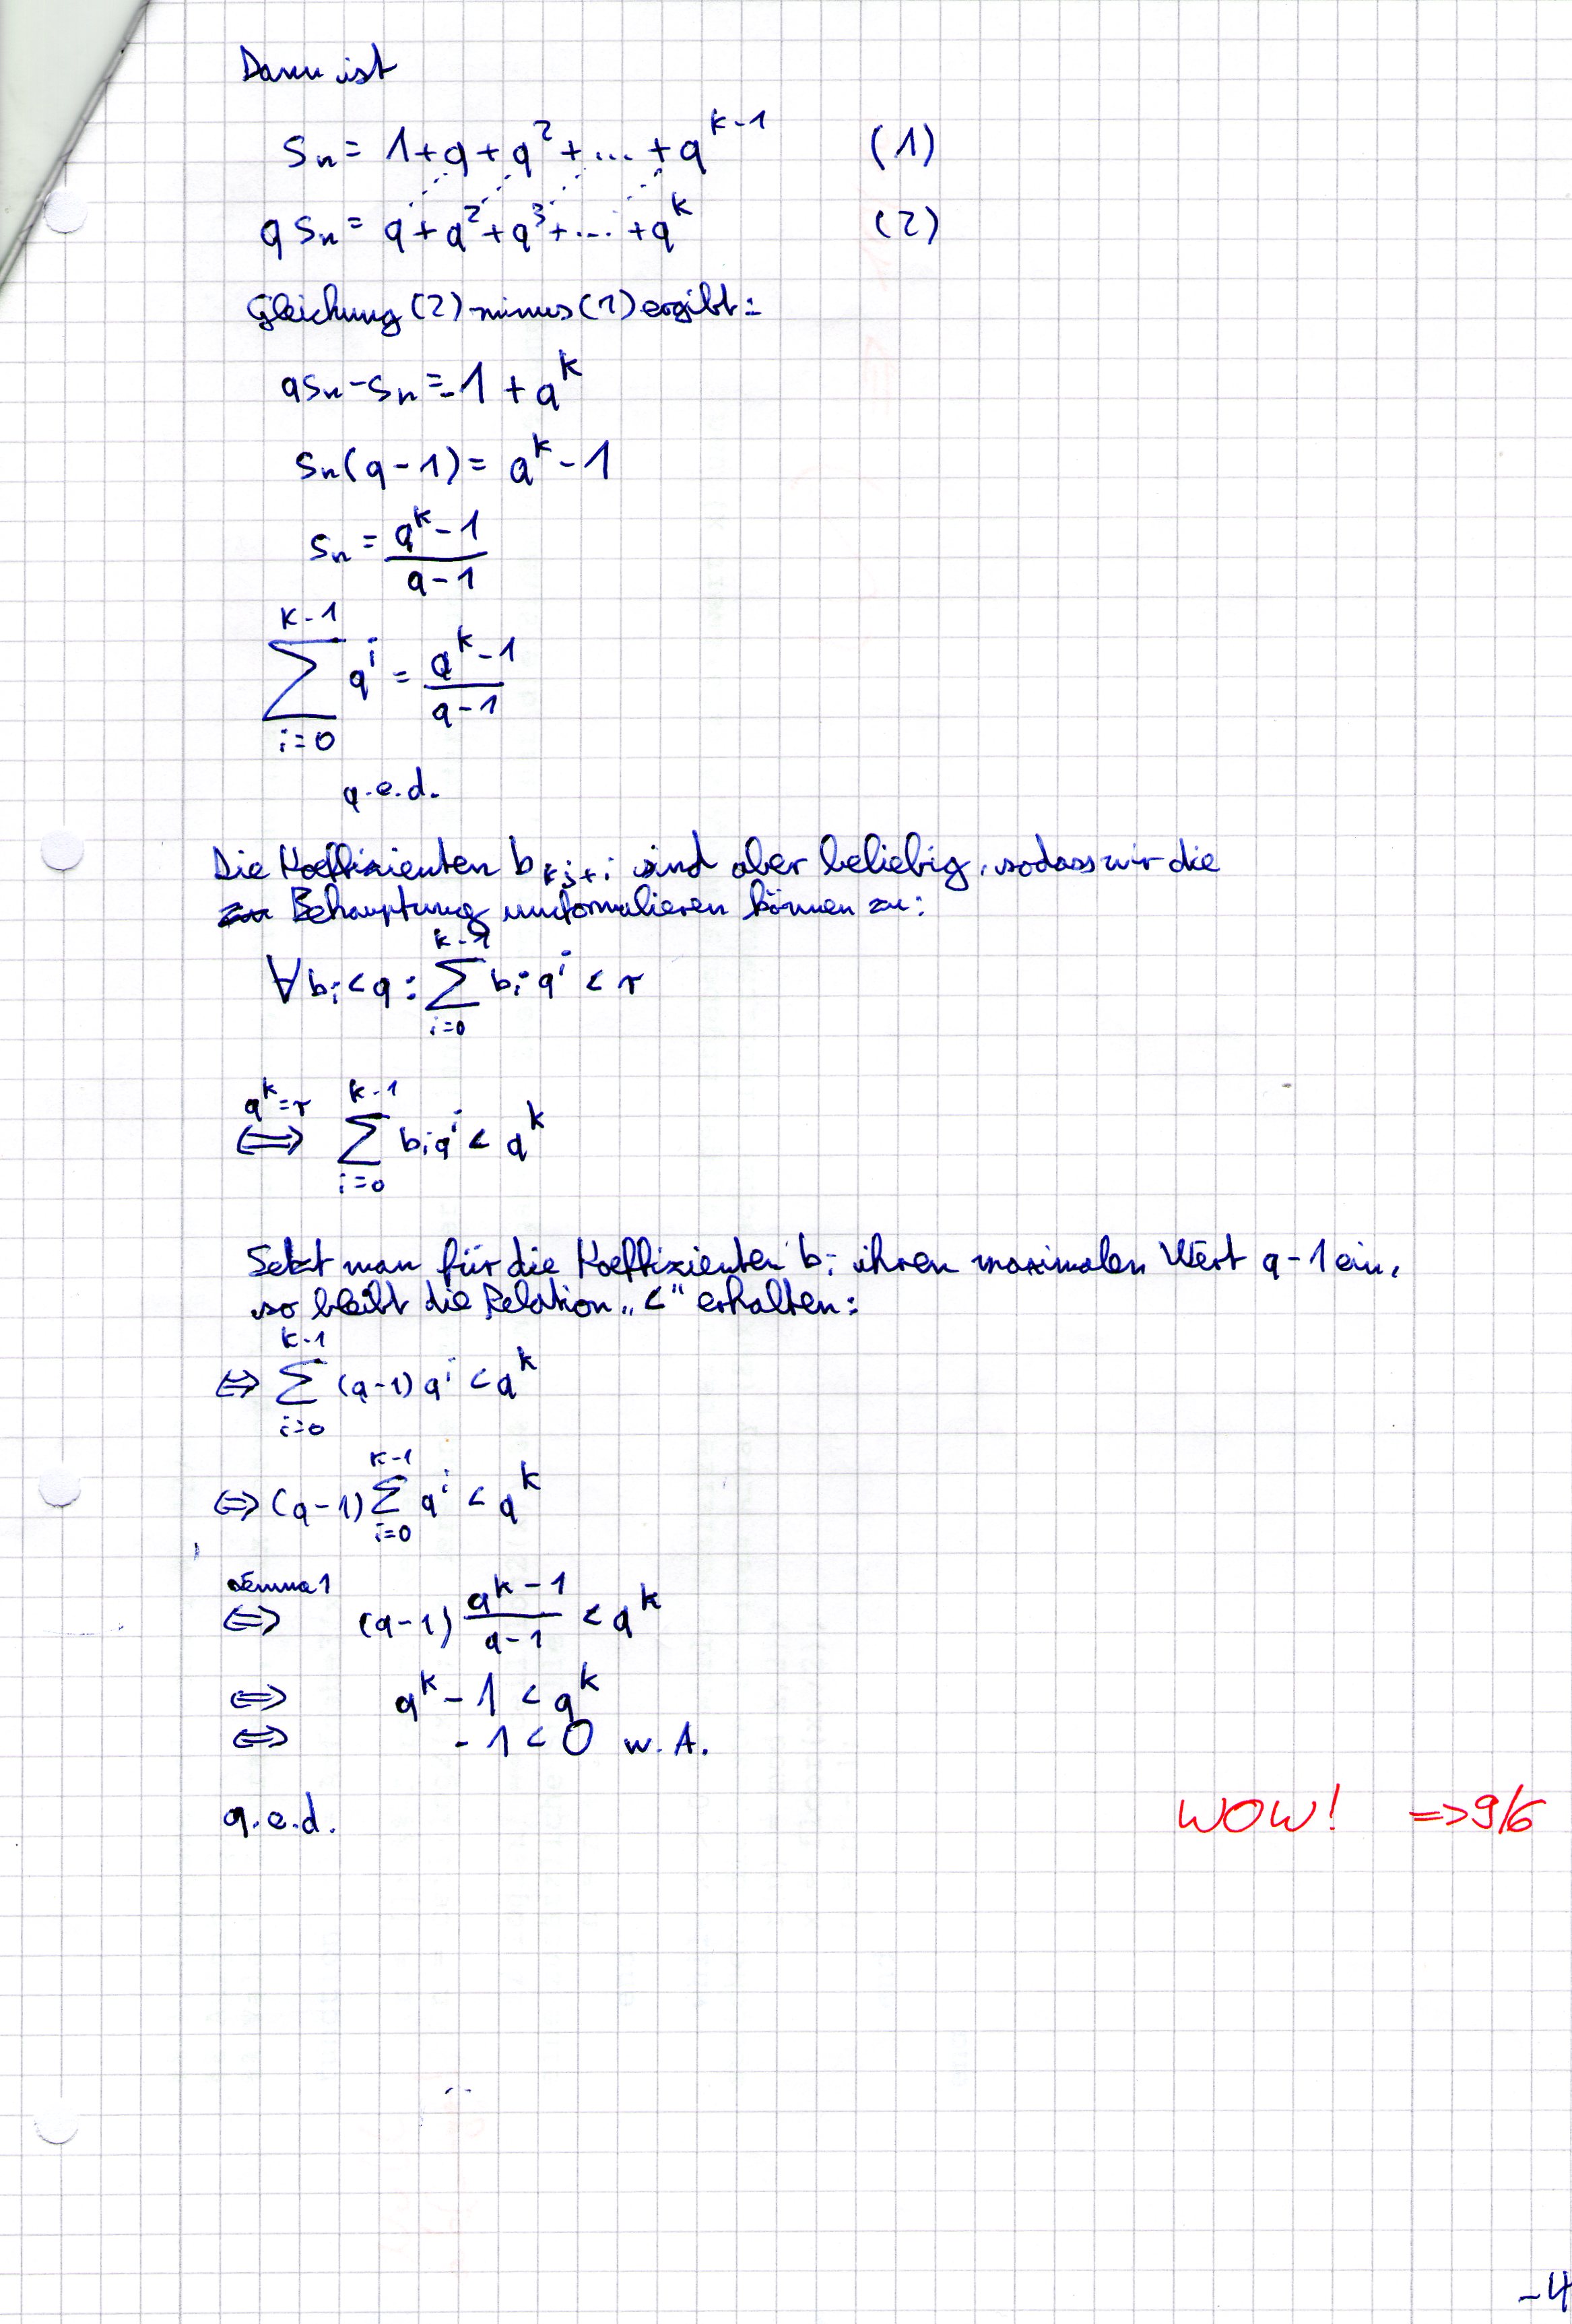 Dann ist
Sn = 1 + q + q² + ... + q^(k-1) (1)
q Sn = q + q² + q³ + ... + q^k (2)
Gleichung (2) minus (1) ergibt:
qSn - Sn = -1 + q^k
Sn(q-1) = q^k - 1
Sn = (q^k - 1)/(q - 1)
∑_{i=0}^{k-1} q^i = (q^k - 1)/(q - 1)
q.e.d.
Die Koeffizienten b_{kj+i} sind aber beliebig, sodass wir die
Behauptung umformulieren können zu:
∀ b_i < q : ∑_{i=0}^{k-1} b_i q^i < r
⇔ (q^k = r) ∑_{i=0}^{k-1} b_i q^i < q^k
Setzt man für die Koeffizienten b_i ihren maximalen Wert q-1 ein,
so bleibt die Relation „<" erhalten:
⇔ ∑_{i=0}^{k-1} (q-1) q^i < q^k
⇔ (q-1) ∑_{i=0}^{k-1} q^i < q^k
⇔ (Lemma 1) (q-1) (q^k - 1)/(q - 1) < q^k
⇔ q^k - 1 < q^k
⇔ -1 < 0 w.A.
q.e.d.
WOW! => 9/6
-4